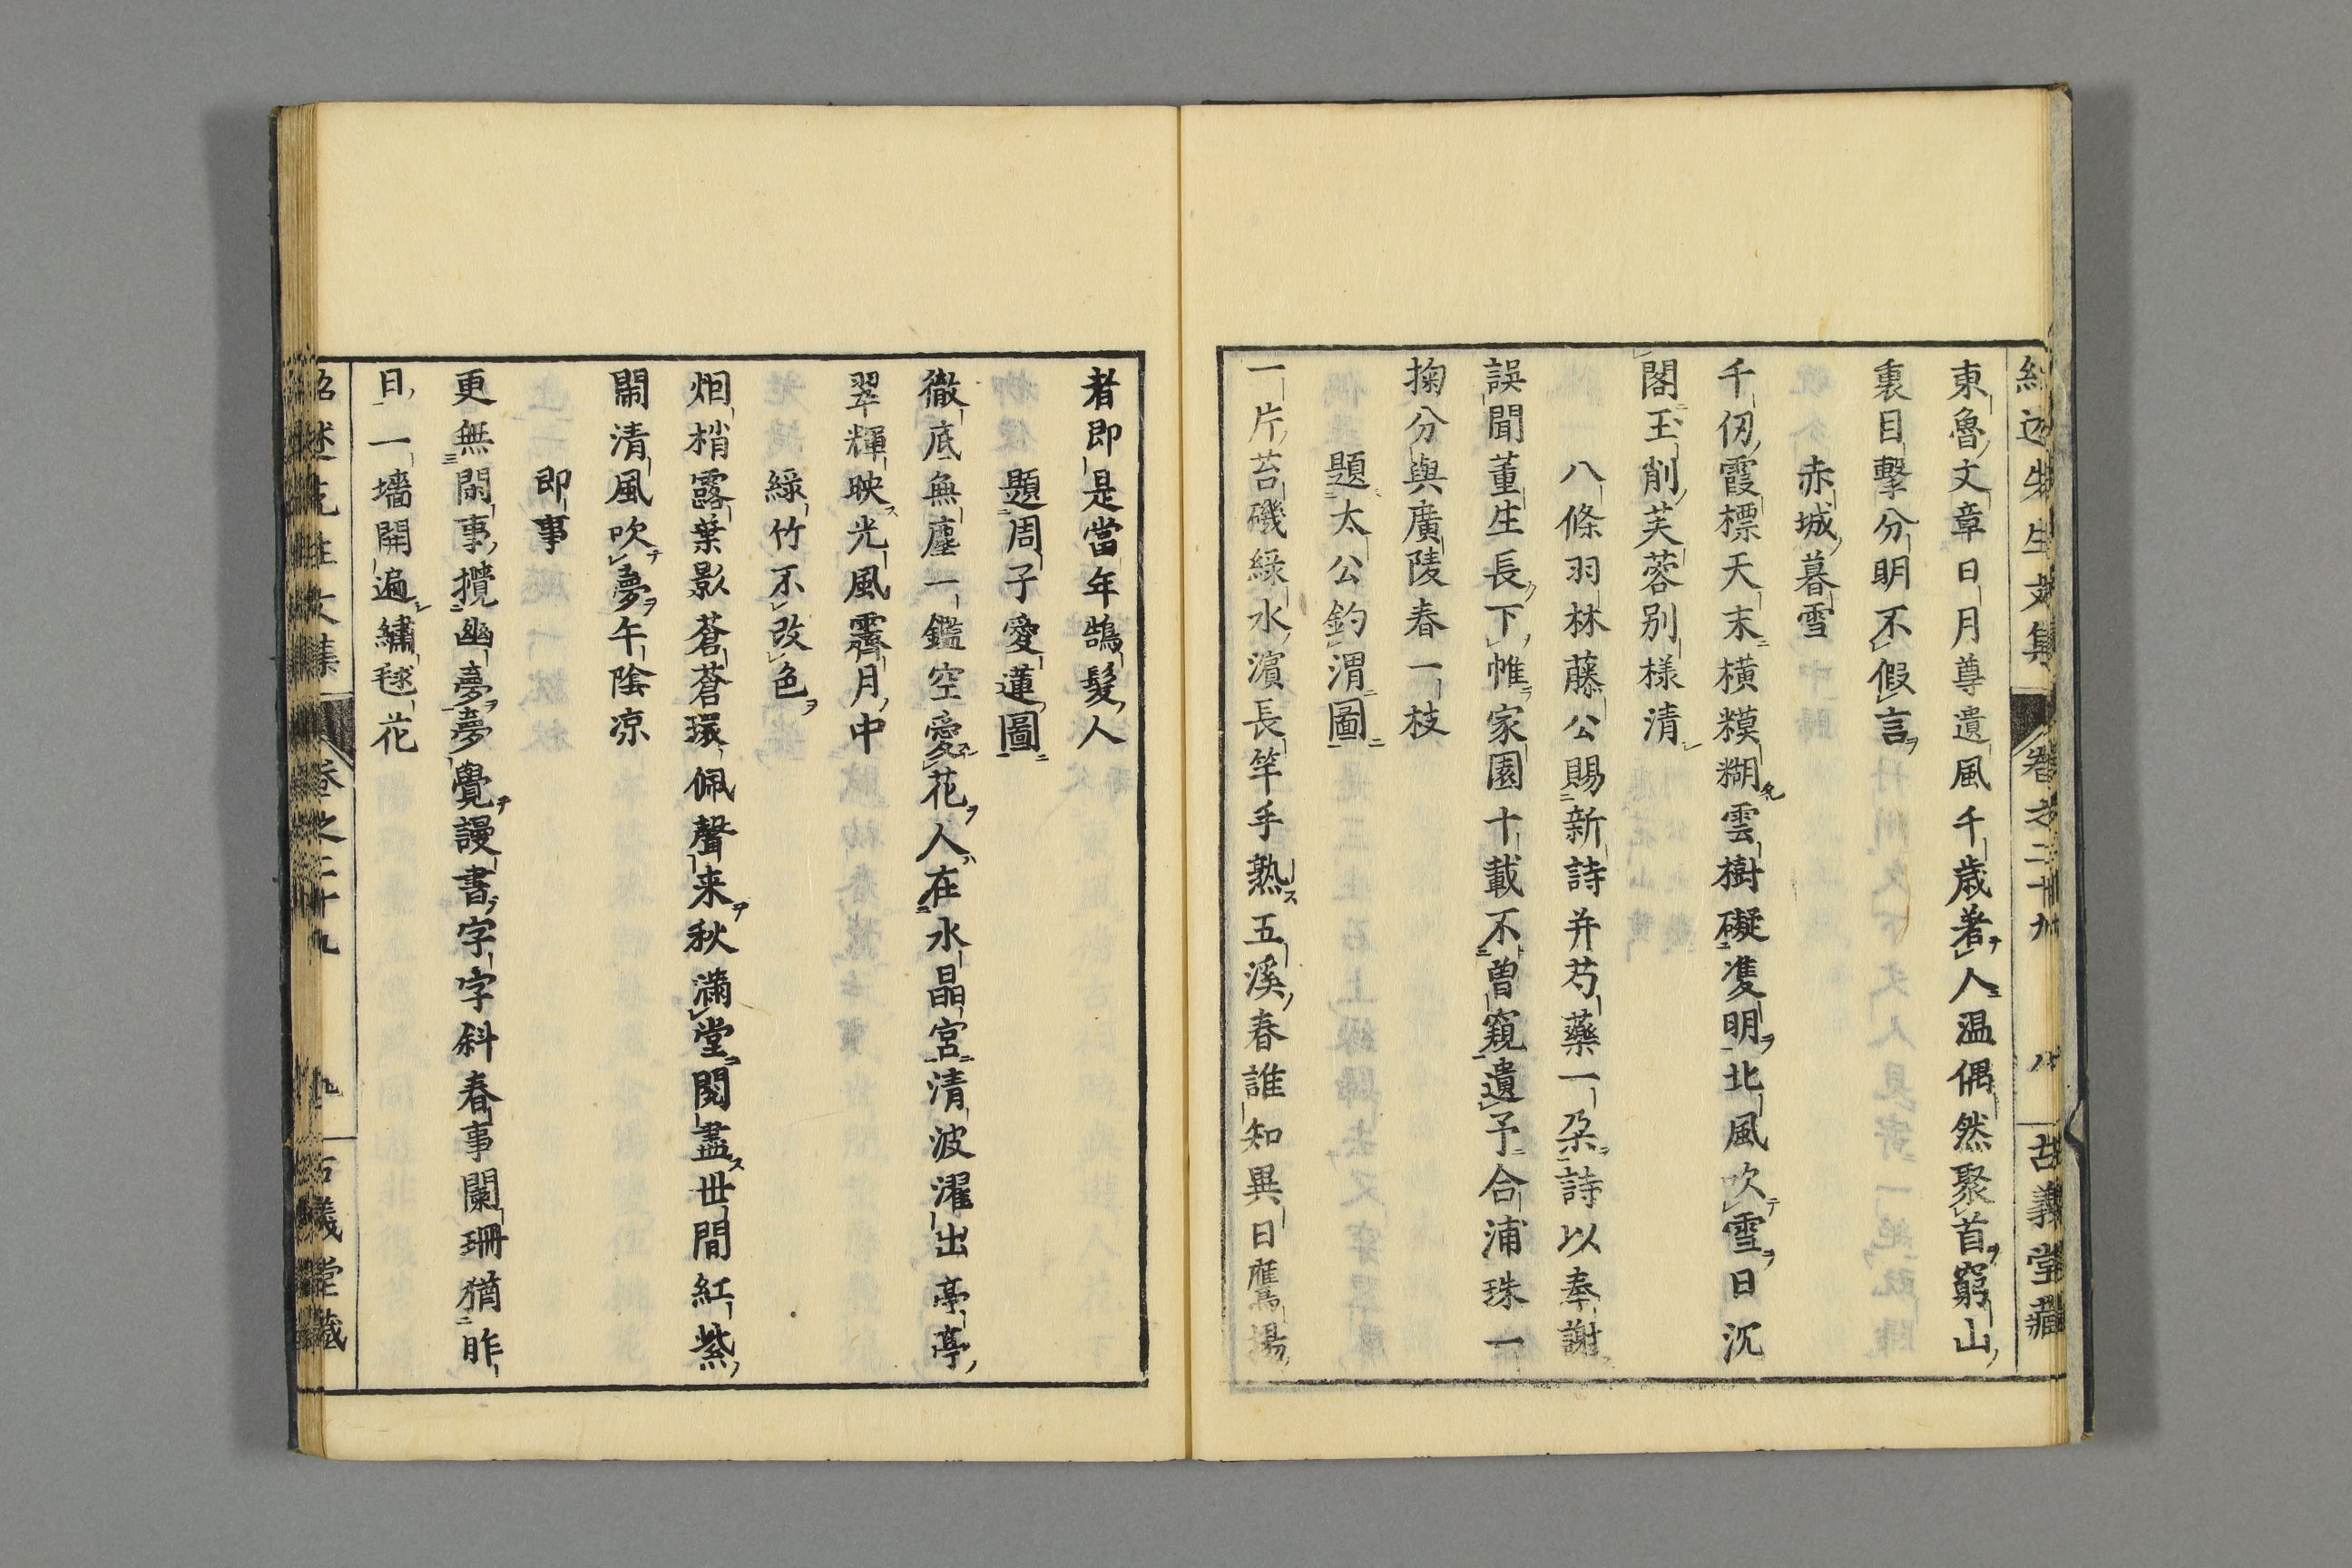 紹述先生文集 卷之二十九 八 古義堂藏
東魯文章日月尊遺風千歳著人温偶然聚首窮山
裏目擊分明不假言
赤城暮雪
千仞霞標天末横糢糊雲樹礙還明北風吹雪日沉
閣玉削芙蓉别樣清
八條羽林藤公賜新詩并芍藥一朶詩以奉謝
誤聞董生長下帷家園十載不曽窺遺予合浦珠一
掬分與廣陵春一枝
題太公釣渭圖
一片苔磯緑水濵長竿手熟五溪春誰知異日鷹揚
者即是當年鵠髮人
題周子愛蓮圖
徹底無塵一鑑空愛花人在水晶宮清波濯出亭亭
翠輝映光風霽月中
緑竹不改色
烟梢露葉影蒼蒼環佩聲来秋滿堂閱盡世間紅紫
鬧清風吹夢午陰凉
即事
更無閑事攪幽夢夢覺謾書字字斜春事闌珊猶昨
日一墻開遍繡毬花
紹述先生文集 卷之二十九 九 古義堂藏